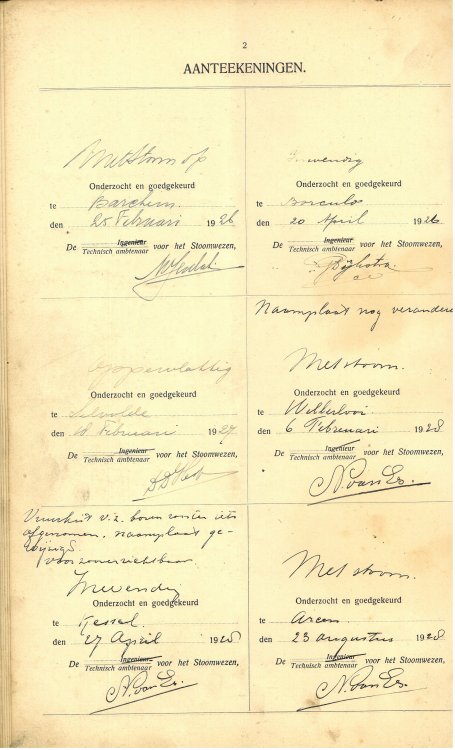 2
AANTEEKENINGEN.
Met Stoom op
Onderzocht en goedgekeurd
te Barchem
den 25 Februari 1926
De Ingenieur voor het Stoomwezen,
Technisch ambtenaar
Inwendig
Onderzocht en goedgekeurd
te Borculo
den 20 April 1926
De Ingenieur voor het Stoomwezen,
Technisch ambtenaar
Dijkstra
Oppervlakkig
Onderzocht en goedgekeurd
te Silvolde
den 18 Februari 1927
De Ingenieur voor het Stoomwezen,
Technisch ambtenaar
Naamplaat nog verandere
Met stoom.
Onderzocht en goedgekeurd
te
den 6 Februari 1928
De Ingenieur voor het Stoomwezen,
Technisch ambtenaar
N. van Es.
Vuurkist v.z. boven rooster iets
afgenomen. naamplaat ge-
wijzigd.
voor zoover zichtbaar
Inwendig
Onderzocht en goedgekeurd
te Kessel.
den 27 April 1928
De Ingenieur voor het Stoomwezen,
Technisch ambtenaar
N. van Es.
Met stoom.
Onderzocht en goedgekeurd
te Arcen
den 23 augustus 1928
De Ingenieur voor het Stoomwezen,
Technisch ambtenaar
N. van Es.